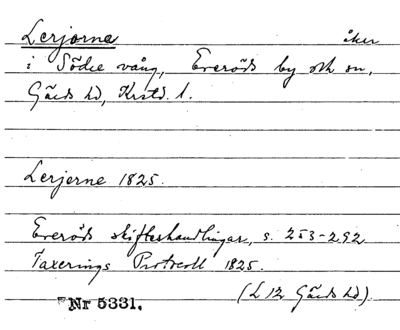 Lerjorna åker
i Södre vång, Everöds by och sn,
Gärds hd, Krstd. l.
Lerjerne 1825.
Everöds skifteshandlingar, s. 253-292
Taxerings Protocoll 1825.
(L 12 Gärds hd).
Nr 5331.